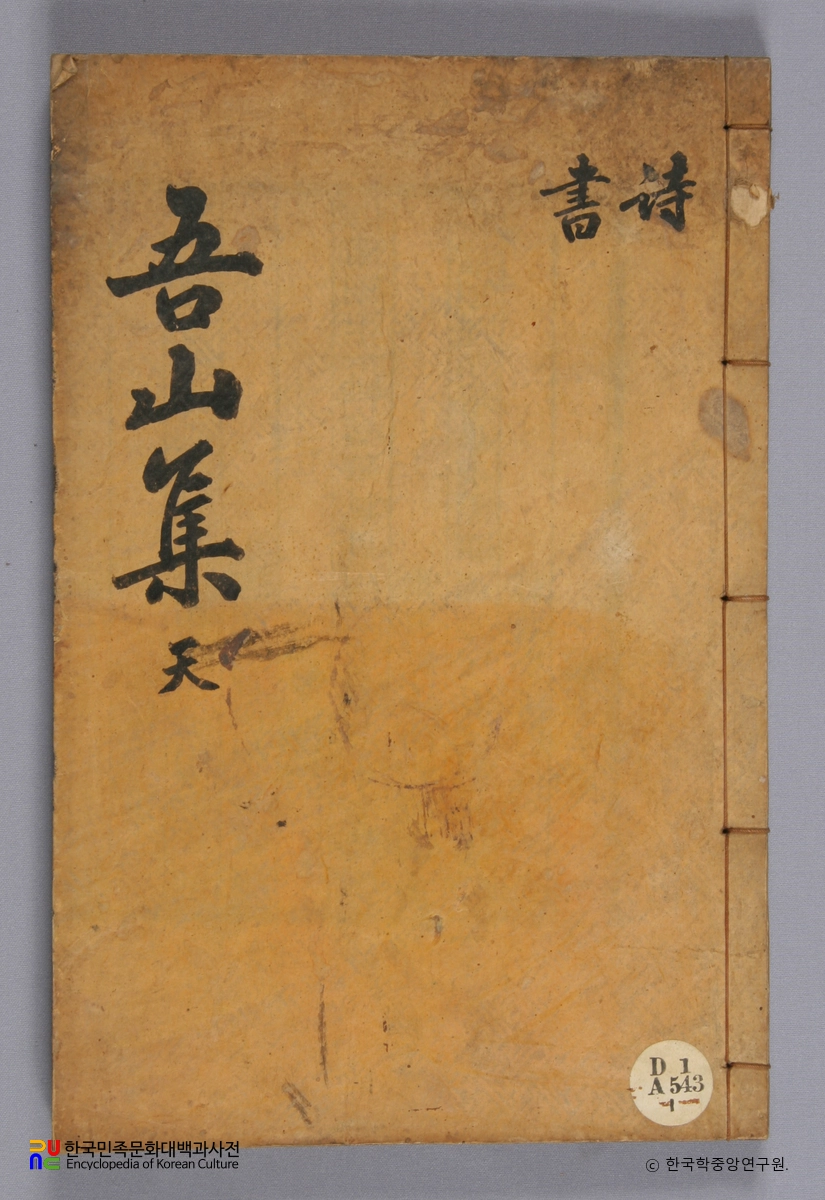 詩
書
吾山集
天
D 1
A 543
1
한국민족문화대백과사전
Encyclopedia of Korean Culture
© 한국학중앙연구원.